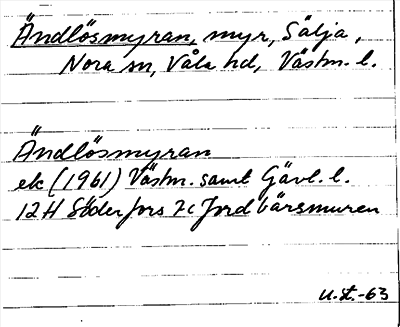 Ändlösmyran, myr, Sälja,
Nora sn, Våla hd, Västm. l.
Ändlösmyran
ek (1961) Västm. samt Gävl. l.
12H Söderfors 7c Jordbärsmuren
u.st.-63